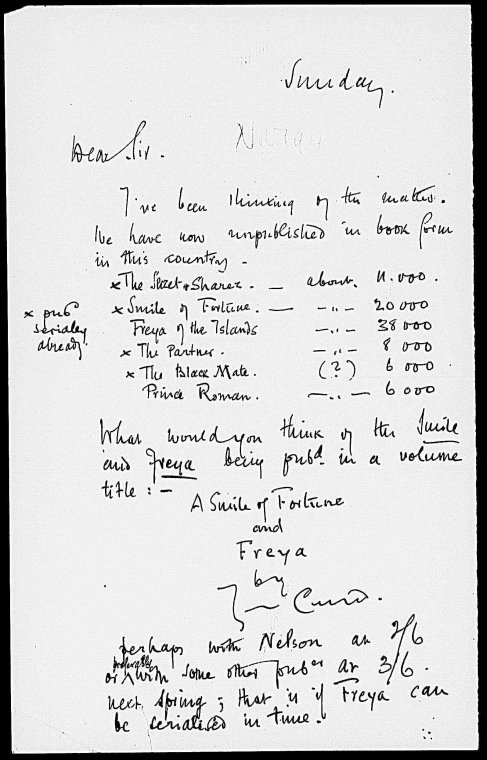 Sunday.
Dear Sir.
I've been thinking of the matter.
We have now unpublished in book form
in this country -
x The Secret Sharer. — about. 11.000.
x Smile of Fortune. — -"- 20 000
Freya of the Islands -"- 38 000
x The Partner. -"- 8 000
x The Black Mate. (?) 6 000
Prince Roman. -"- 6 000
x pubd
serialey
already.
What would you think of the Smile
and Freya being pubd in a volume
title : —
A Smile of Fortune
and
Freya
by
J — Conrad.
perhaps with Nelson at 2/6
or preferably with some other puber at 3/6.
next spring ; that is if Freya can
be serialised in time.